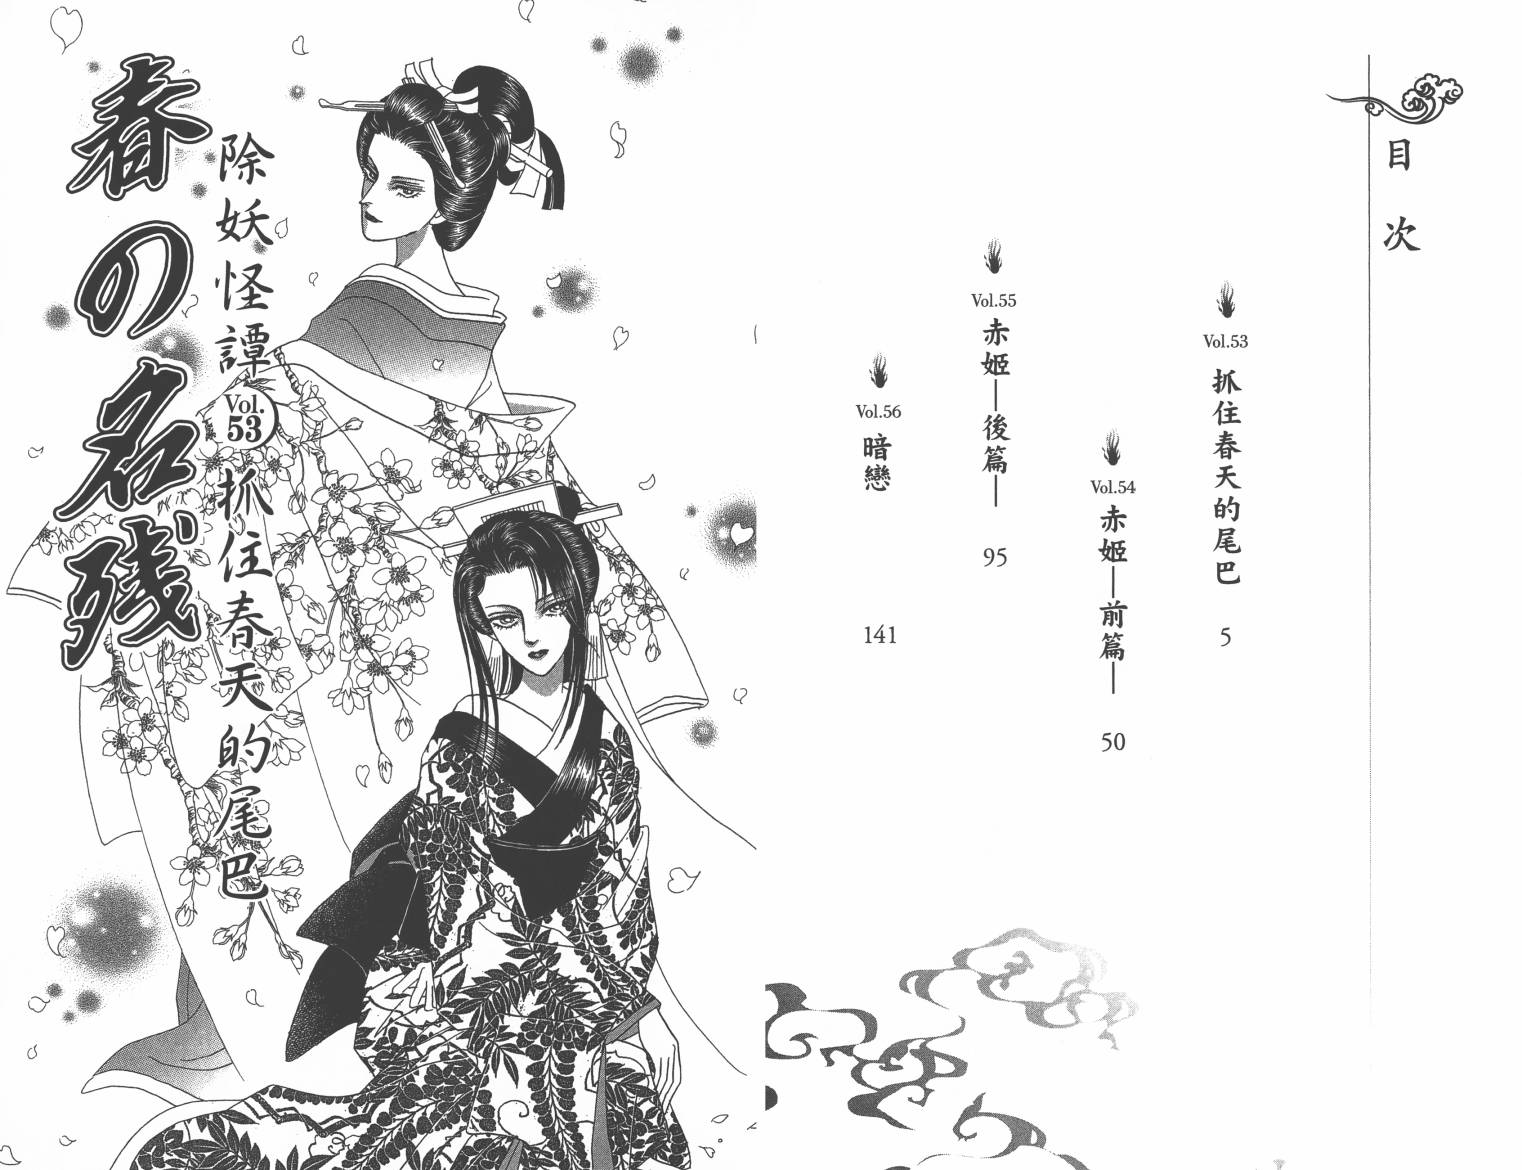 目次
Vol.53
抓住春天的尾巴
5
Vol.54
赤姬—前篇—
50
Vol.55
赤姬—後篇—
95
Vol.56
暗戀
141
除妖怪譚 Vol.53 抓住春天的尾巴
春の名残